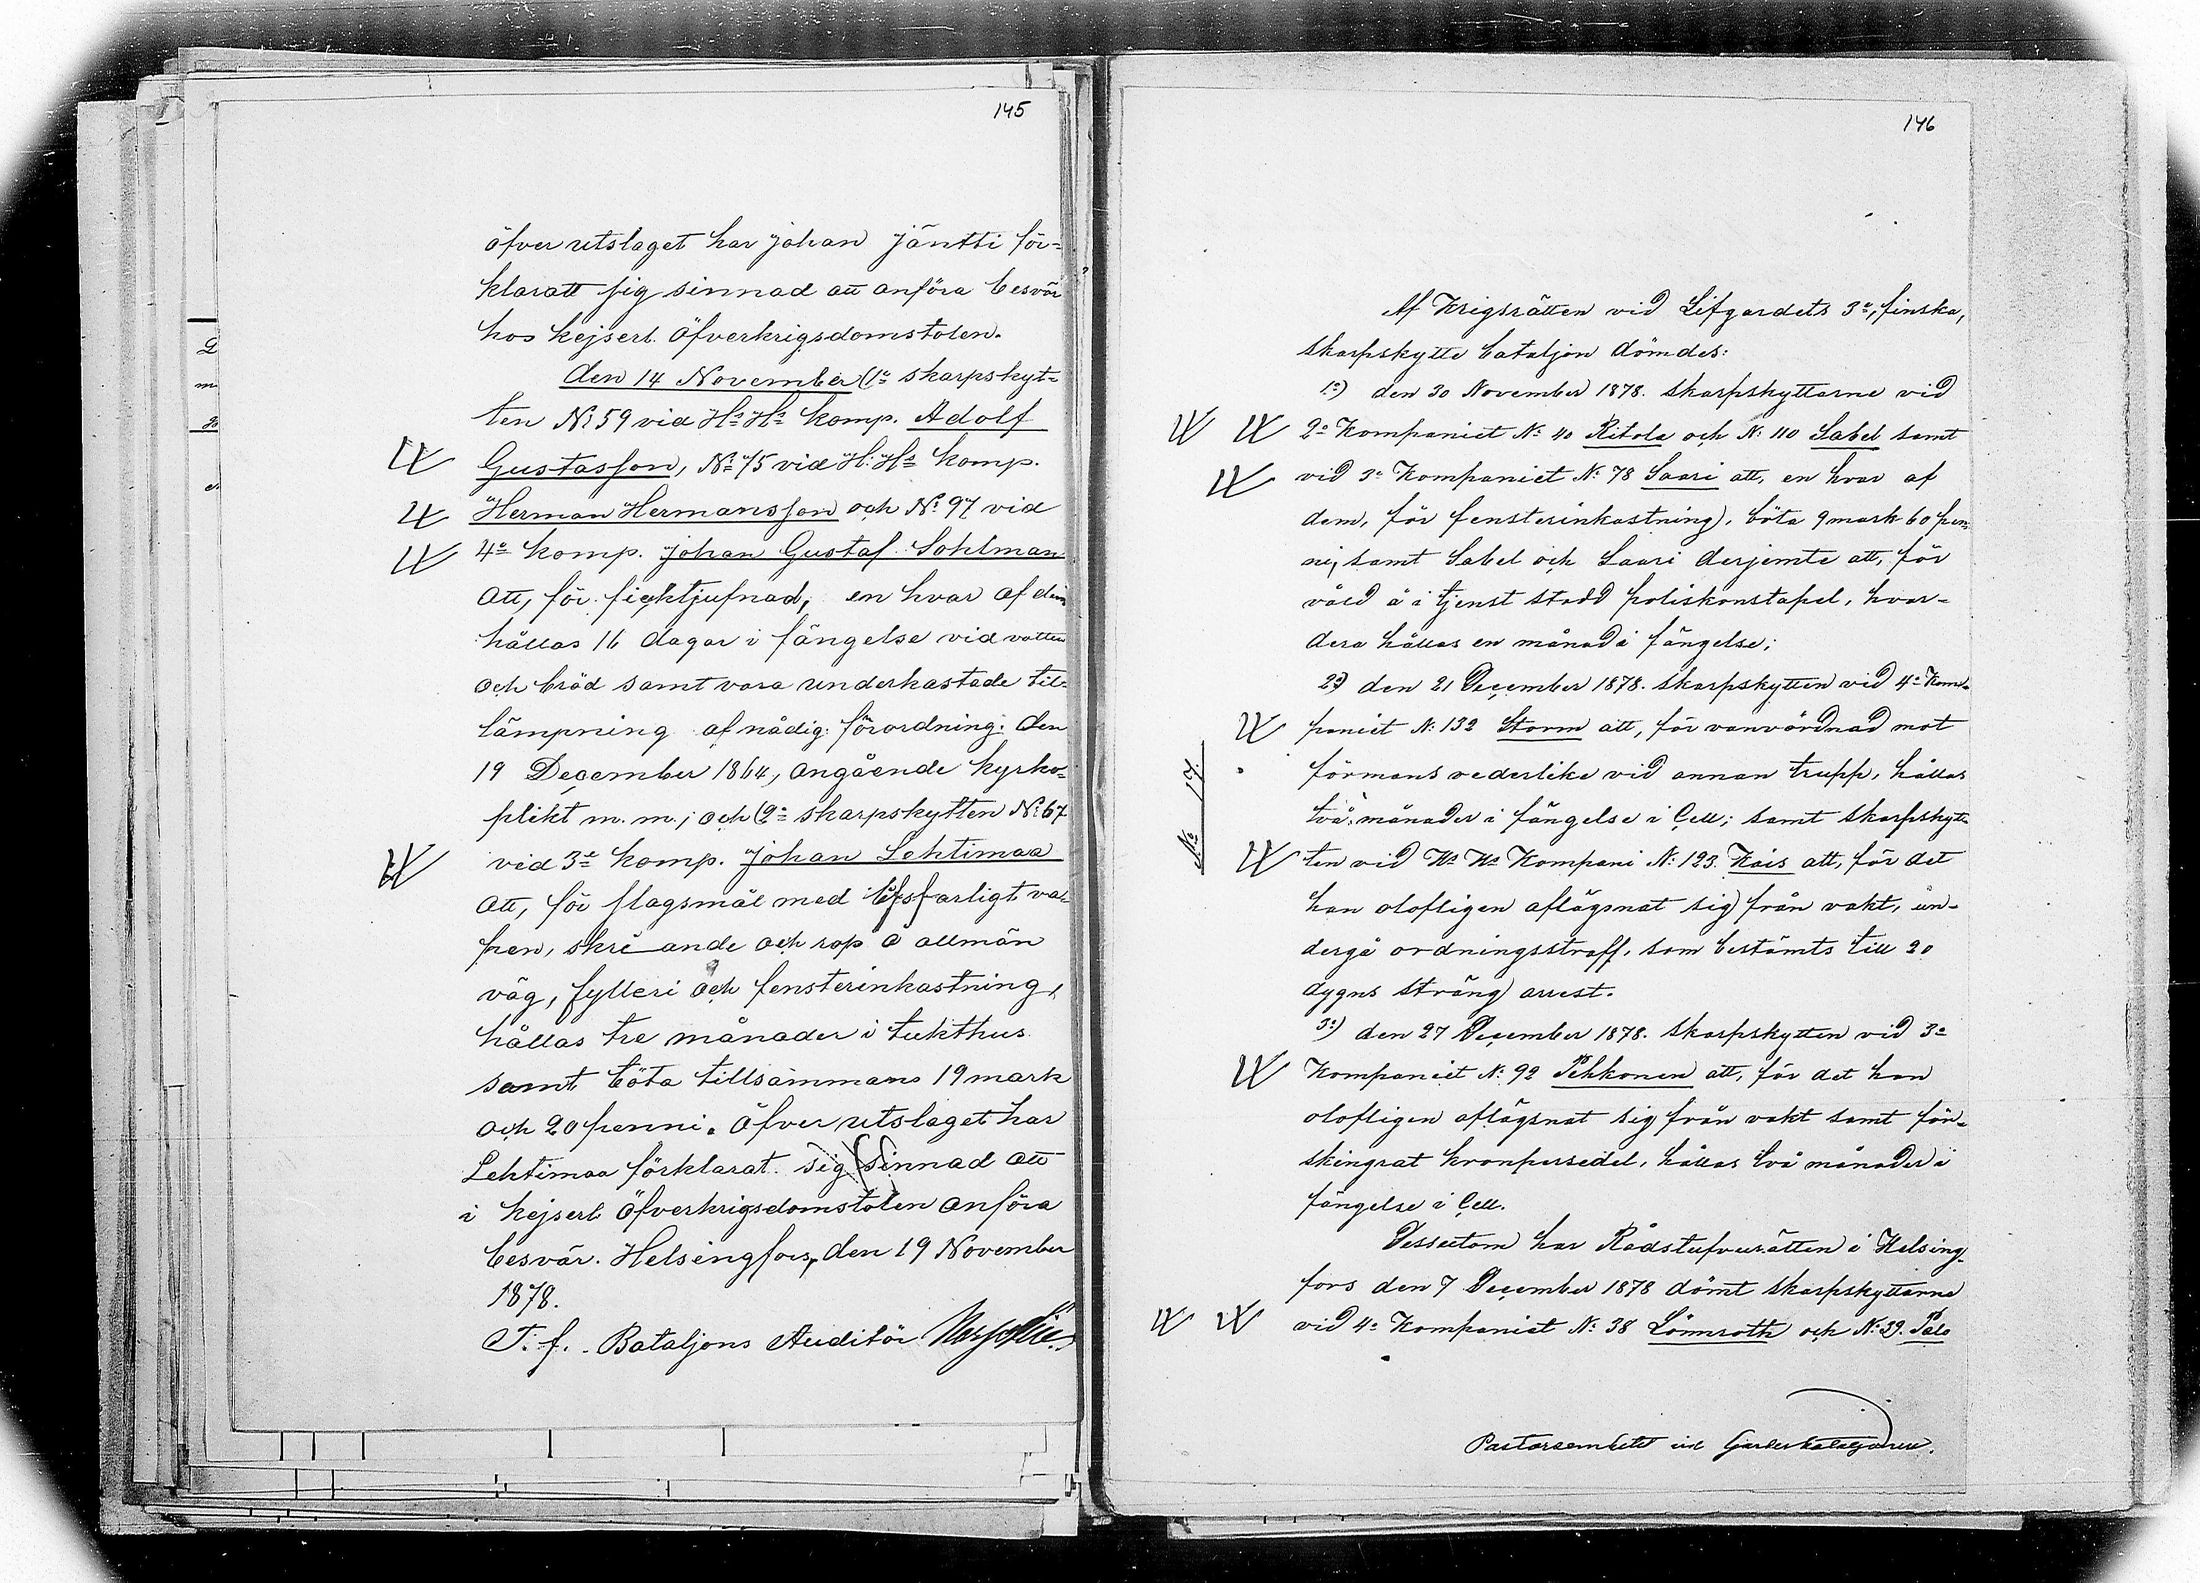 145
öfver utslaget har Johan Jäntti för=
klaratt sig sinnad att anföra besvär
hos Kejserl. Öfverkrigsdomstolen.
den 14 November (1o skarpskyt=
ten No 59 vid Hs Hs Komp. Adolf
Gustafsson, No 75 vid H. Hs Komp.
Herman Hermansson och No 97 vid
4e Komp. Johan Gustaf Sohlman
att, för ficktjufnad, en hvar af dem
hållas 16 dagar i fängelse vid vatten
och bröd samt vara underkastade til=
lämpning af nådig förordning den
19 December 1864, angående kyrko=
plikt m. m.; och (2o skarpskytten No 67
vid 3e Komp. Johan Lehtimaa
att, för slagsmål med lifsfarligt va=
pen, skri ande och rop å allmän
väg, fylleri och fensterinkastning,
hållas tre månader i tukthus
samt böta tillsammans 19 mark
och 20 penni. Öfver utslaget har
Lehtimaa förklarat sig sinnad att
i Kejserl Öfverkrigsdomstolen anföra
besvär. Helsingfors, den 19 November
1878.
T. f. Bataljons Auditör
146
Af Krigsrätten vid Lifgardets 3e, finska,
skarpskytte bataljon dömdes:
1o) den 30 November 1878. skarpskyttarne vid
2a Kompaniet No 40 Ritola och No 110 Sabel samt
vid 3e Kompaniet No 78 Saari att, en hvar af
dem, för fensterinkastning, böta 9 mark 60 pen=
ni, samt Sabel och Saari derjemte att, för
våld å i tjenst stadd poliskonstapel, hvar-
dera hållas en månad i fängelse;
2o) den 21 December 1878. skarpskytten vid 4e Kom-
paniet No 132 Storm att, för vanvördnad mot
förmans vederlike vid annan trupp, hållas
två månader i fängelse i Cell; samt skarpskyt=
ten vid Hs Hs Kompani No 123. Kais att, för det
han olofligen aflägsnat sig från vakt, un-
dergå ordningsstraff, som bestämts till 20
dygns sträng arrest.
3o) den 27 December 1878. skarpskytten vid 3e
Kompaniet No 92 Pekkonen att, för det han
olofligen aflägsnat sig från vakt samt för-
skingrat kronpersedel, hållas två månader i
fängelse i Cell.
Dessutom har Rådstufvurätten i Helsing-
fors den 7 December 1878 dömt skarpskyttarne
vid 4e Kompaniet No 38 Lönnroth och No 29. Palo
Pastorsembetet vid Gardesbataljonen.
No 17.